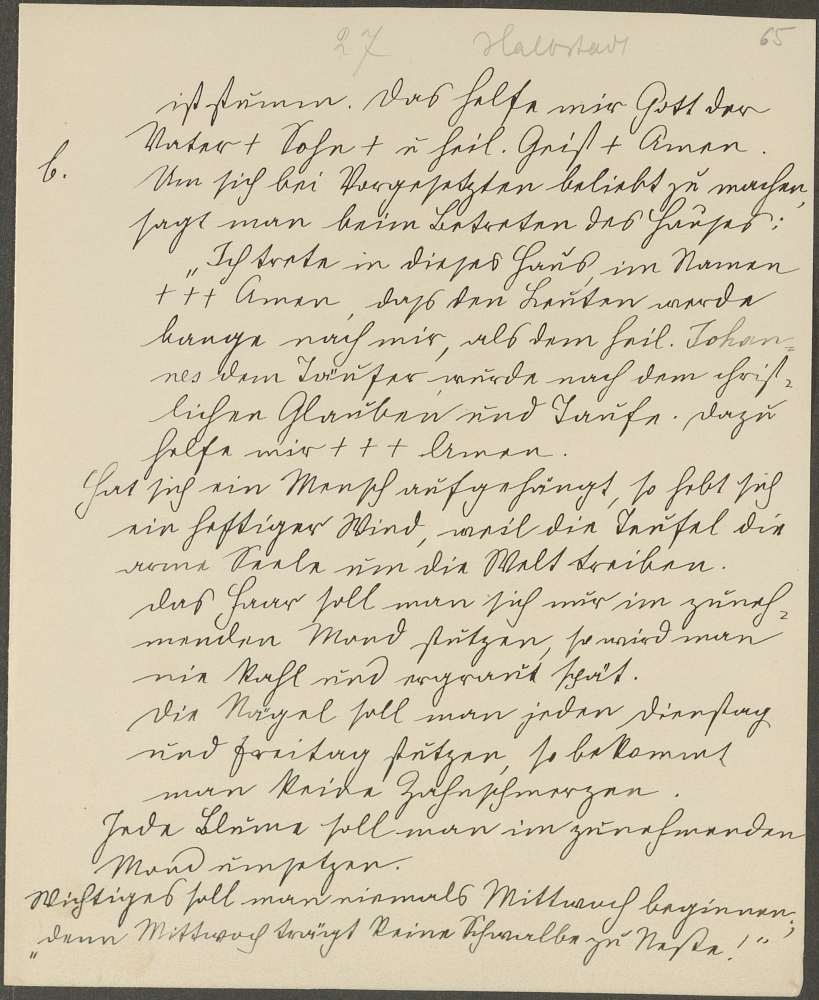 27 Halbstadt 65
ist stumm. Das helfe mir Gott der
Vater + Sohn + u heil. Geist + Amen.
6. Um sich bei Vorgesetzten beliebt zu machen,
sagt man beim Betreten des Hauses:
„Ich trete in dieses Haus im Namen
+ + + Amen, dass den Leuten werde
bange nach mir, als dem heil. Johan=
nes dem Täufer wurde nach dem christ=
lichen Glauben und Taufe. Dazu
helfe mir + + + Amen.
Hat sich ein Mensch aufgehängt, so hebt sich
ein heftiger Wind, weil die Teufel die
arme Seele um die Welt treiben.
Das Haar soll man sich nur im zuneh=
menden Mond stutzen, so wird man
nie kahl und ergraut spät.
Die Nägel soll man jeden Dienstag
und Freitag stutzen, so bekommt
man keine Zahnschmerzen.
Jede Blume soll man im zunehmenden
Mond umsetzen.
Wichtiges soll man niemals Mittwoch beginnen;
„denn Mittwoch trägt keine Schwalbe zu Neste!"